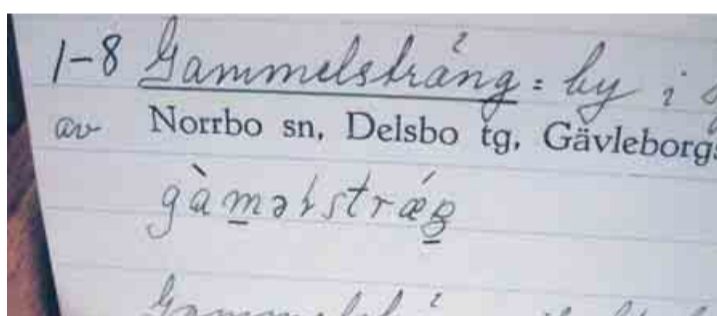 1-8 Gammelsträng = by i
av Norrbo sn, Delsbo tg, Gävleborgs
gàməlstrǽŋ